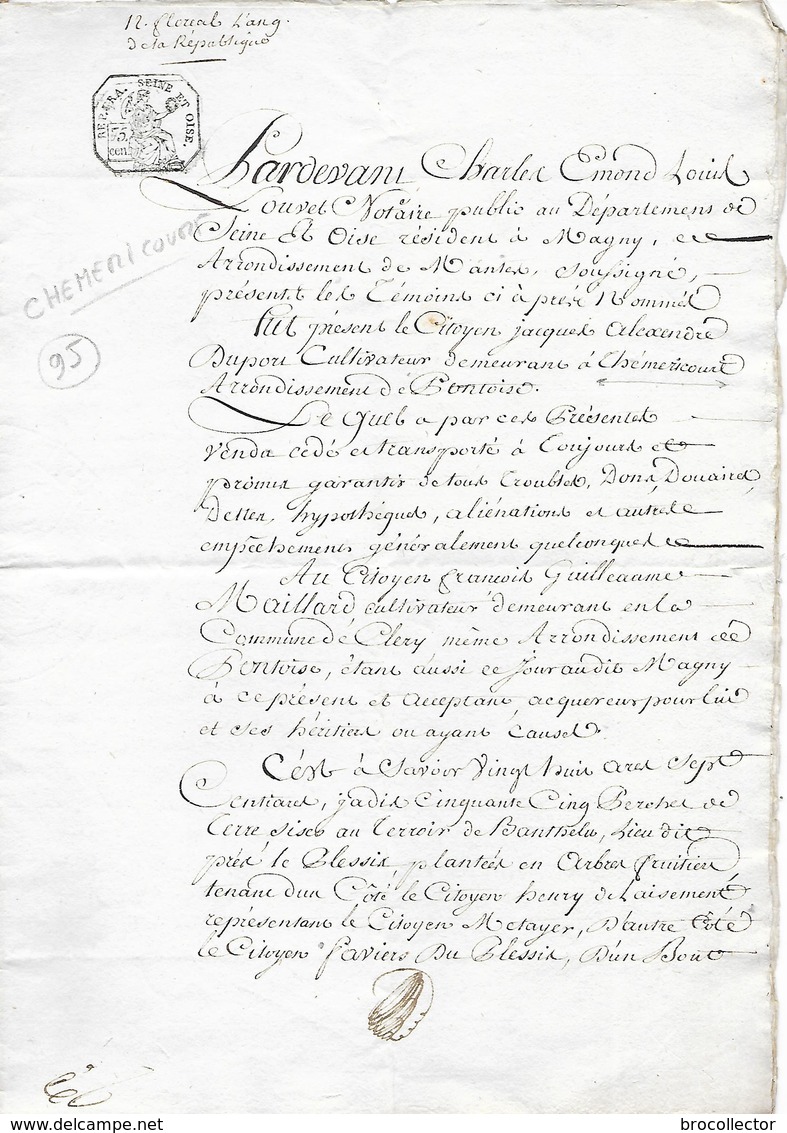 12. floreal L'an 9.
de la République
REP. FRA. SEINE ET OISE.
75.
cen.
CHEMERICOURT
95
Pardevant Charles Emond Louis
Louvet Notaire public au Département de
Seine Et Oise résident à Magny,
Arrondissement de Mantes, soussigné,
présents les Témoins ci après Nommés
Fut présent le Citoyen jacques Alexendre
Duport Cultivateur demeurant à Théméricourt
Arrondissement dé Pontoise.
Le Quel a par ces Présentes
vendu cédé et transporté à Toujours et
promis garantir de tous Troubles, Dons, Douaires,
Dettes, hypothéques, aliénations et autres
empêchements généralement quelconques
Au Citoyen francois Guilleaume
Maillard cultivateur demeurant en la
Commune dé Clery même Arrondissement de
Pontoise, étant aussi ce jour audit Magny
à ce présent et acceptant, acquereur pour lui
et ses héritiers ou ayant Causes.
C'est à Savoir Vingt huit ares sept
Centiares, jadis Cinquante Cinq Perches de
Terre sises au Terroir de Banthelu, Lieu dit
près le Plessis, plantées en Arbres fruitiers,
tenant d'un Côté le Citoyen henry de Laisement
représentant le Citoyen Metayer, D'autre Côté
le Citoyen faviers Du Plessis, D'un Bout
brocollector